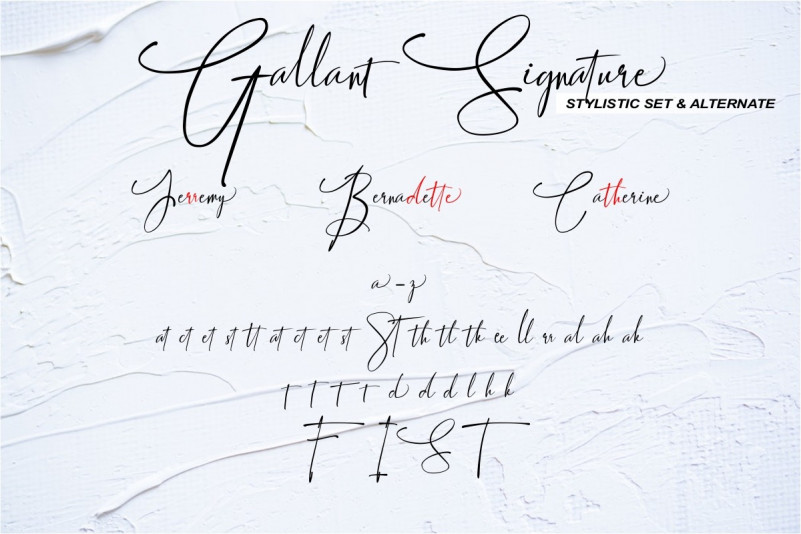 Gallant Signature
STYLISTIC SET & ALTERNATE
Jerremy Bernadette Catherine
a - z
at ct et st tt at ct et st ST th tl tk ee ll rr al ah ak
t t t t d d d l h k
F I S T